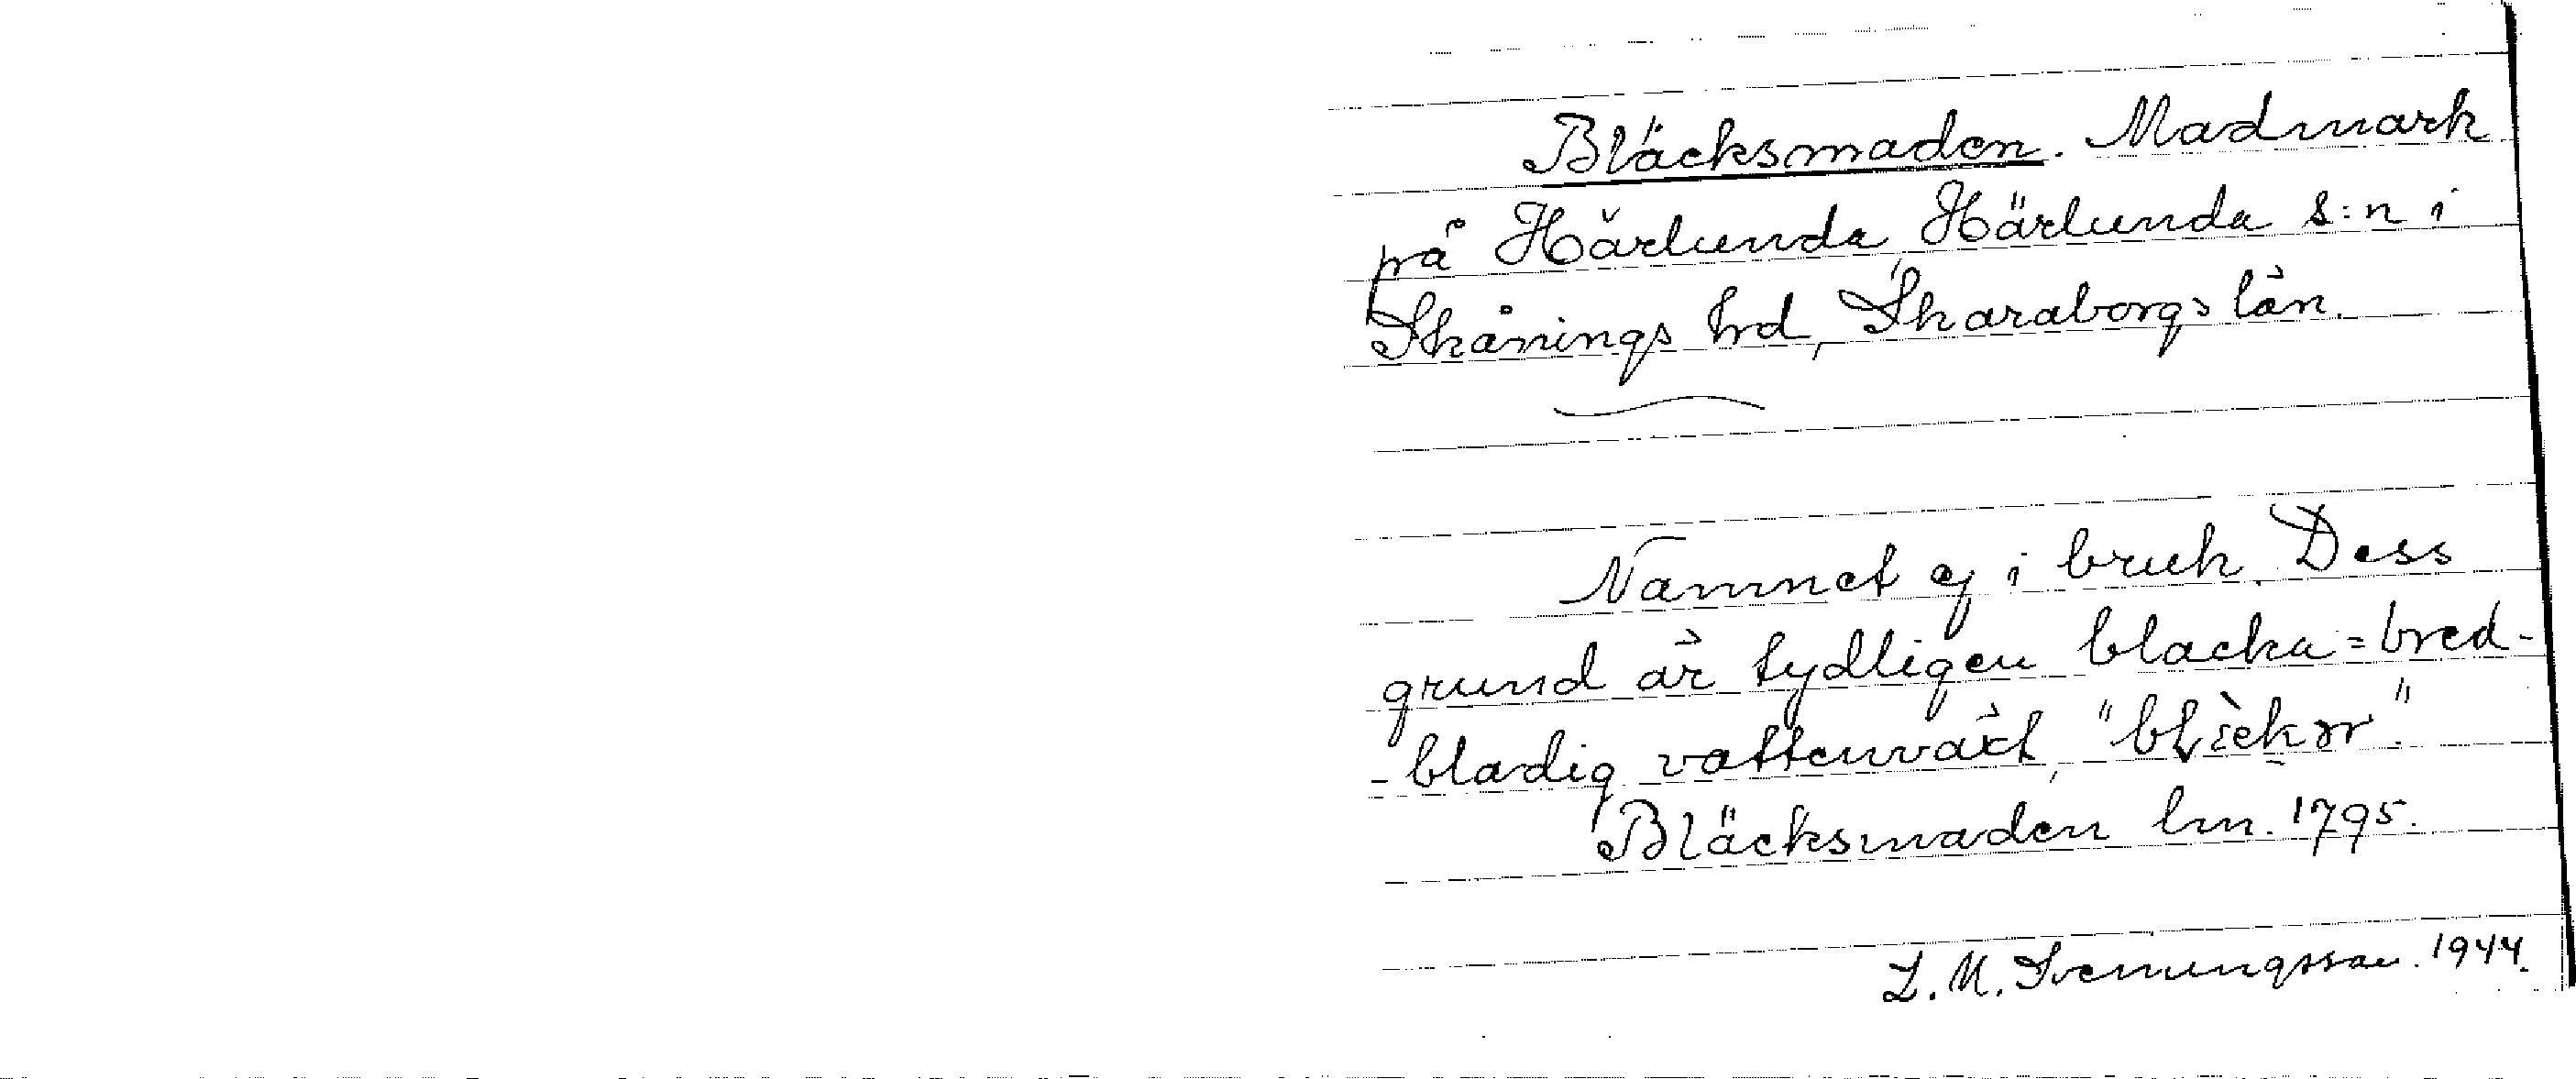 Bläcksmaden. Madmark
på Härlunda, Härlunda s:n i
Skånings hd, Skaraborgs län.
Namnet ej i bruk. Dess
grund är tydligen blacka = bred-
-bladig vattenväxt,
Bläcksmaden lm. 1795.
L. M. Svenungsson 1944.